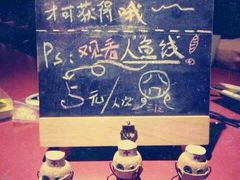 才可获得哦~~
Ps:观看人鱼线
5元/人次